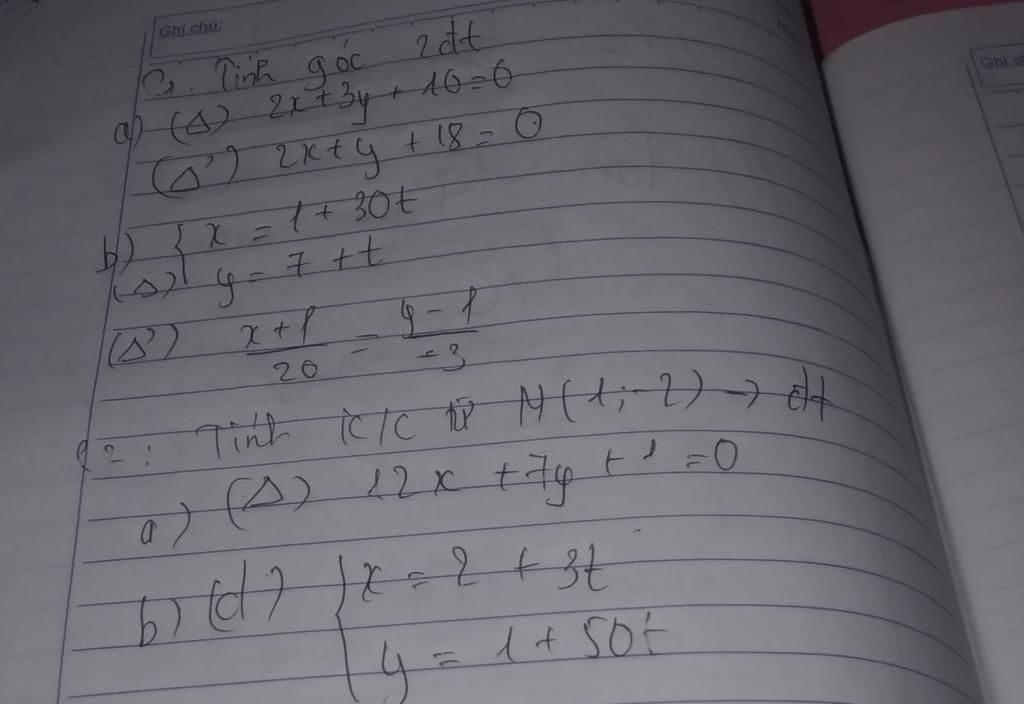 Ghi chú:
C1. Tính góc 2đt
a) (Δ) 2x+3y + 10=0
(Δ') 2x+y +18=0
b) { x = 1 + 30t
(Δ) y = 7 + t
(Δ') x+1 / 20 = y-1 / -3
C2: Tính K/C từ N(1;-2) → đt
a) (Δ) 12x +7y +1 =0
b) (d) { x = 2 + 3t
y = 1+50t
Ghi ch